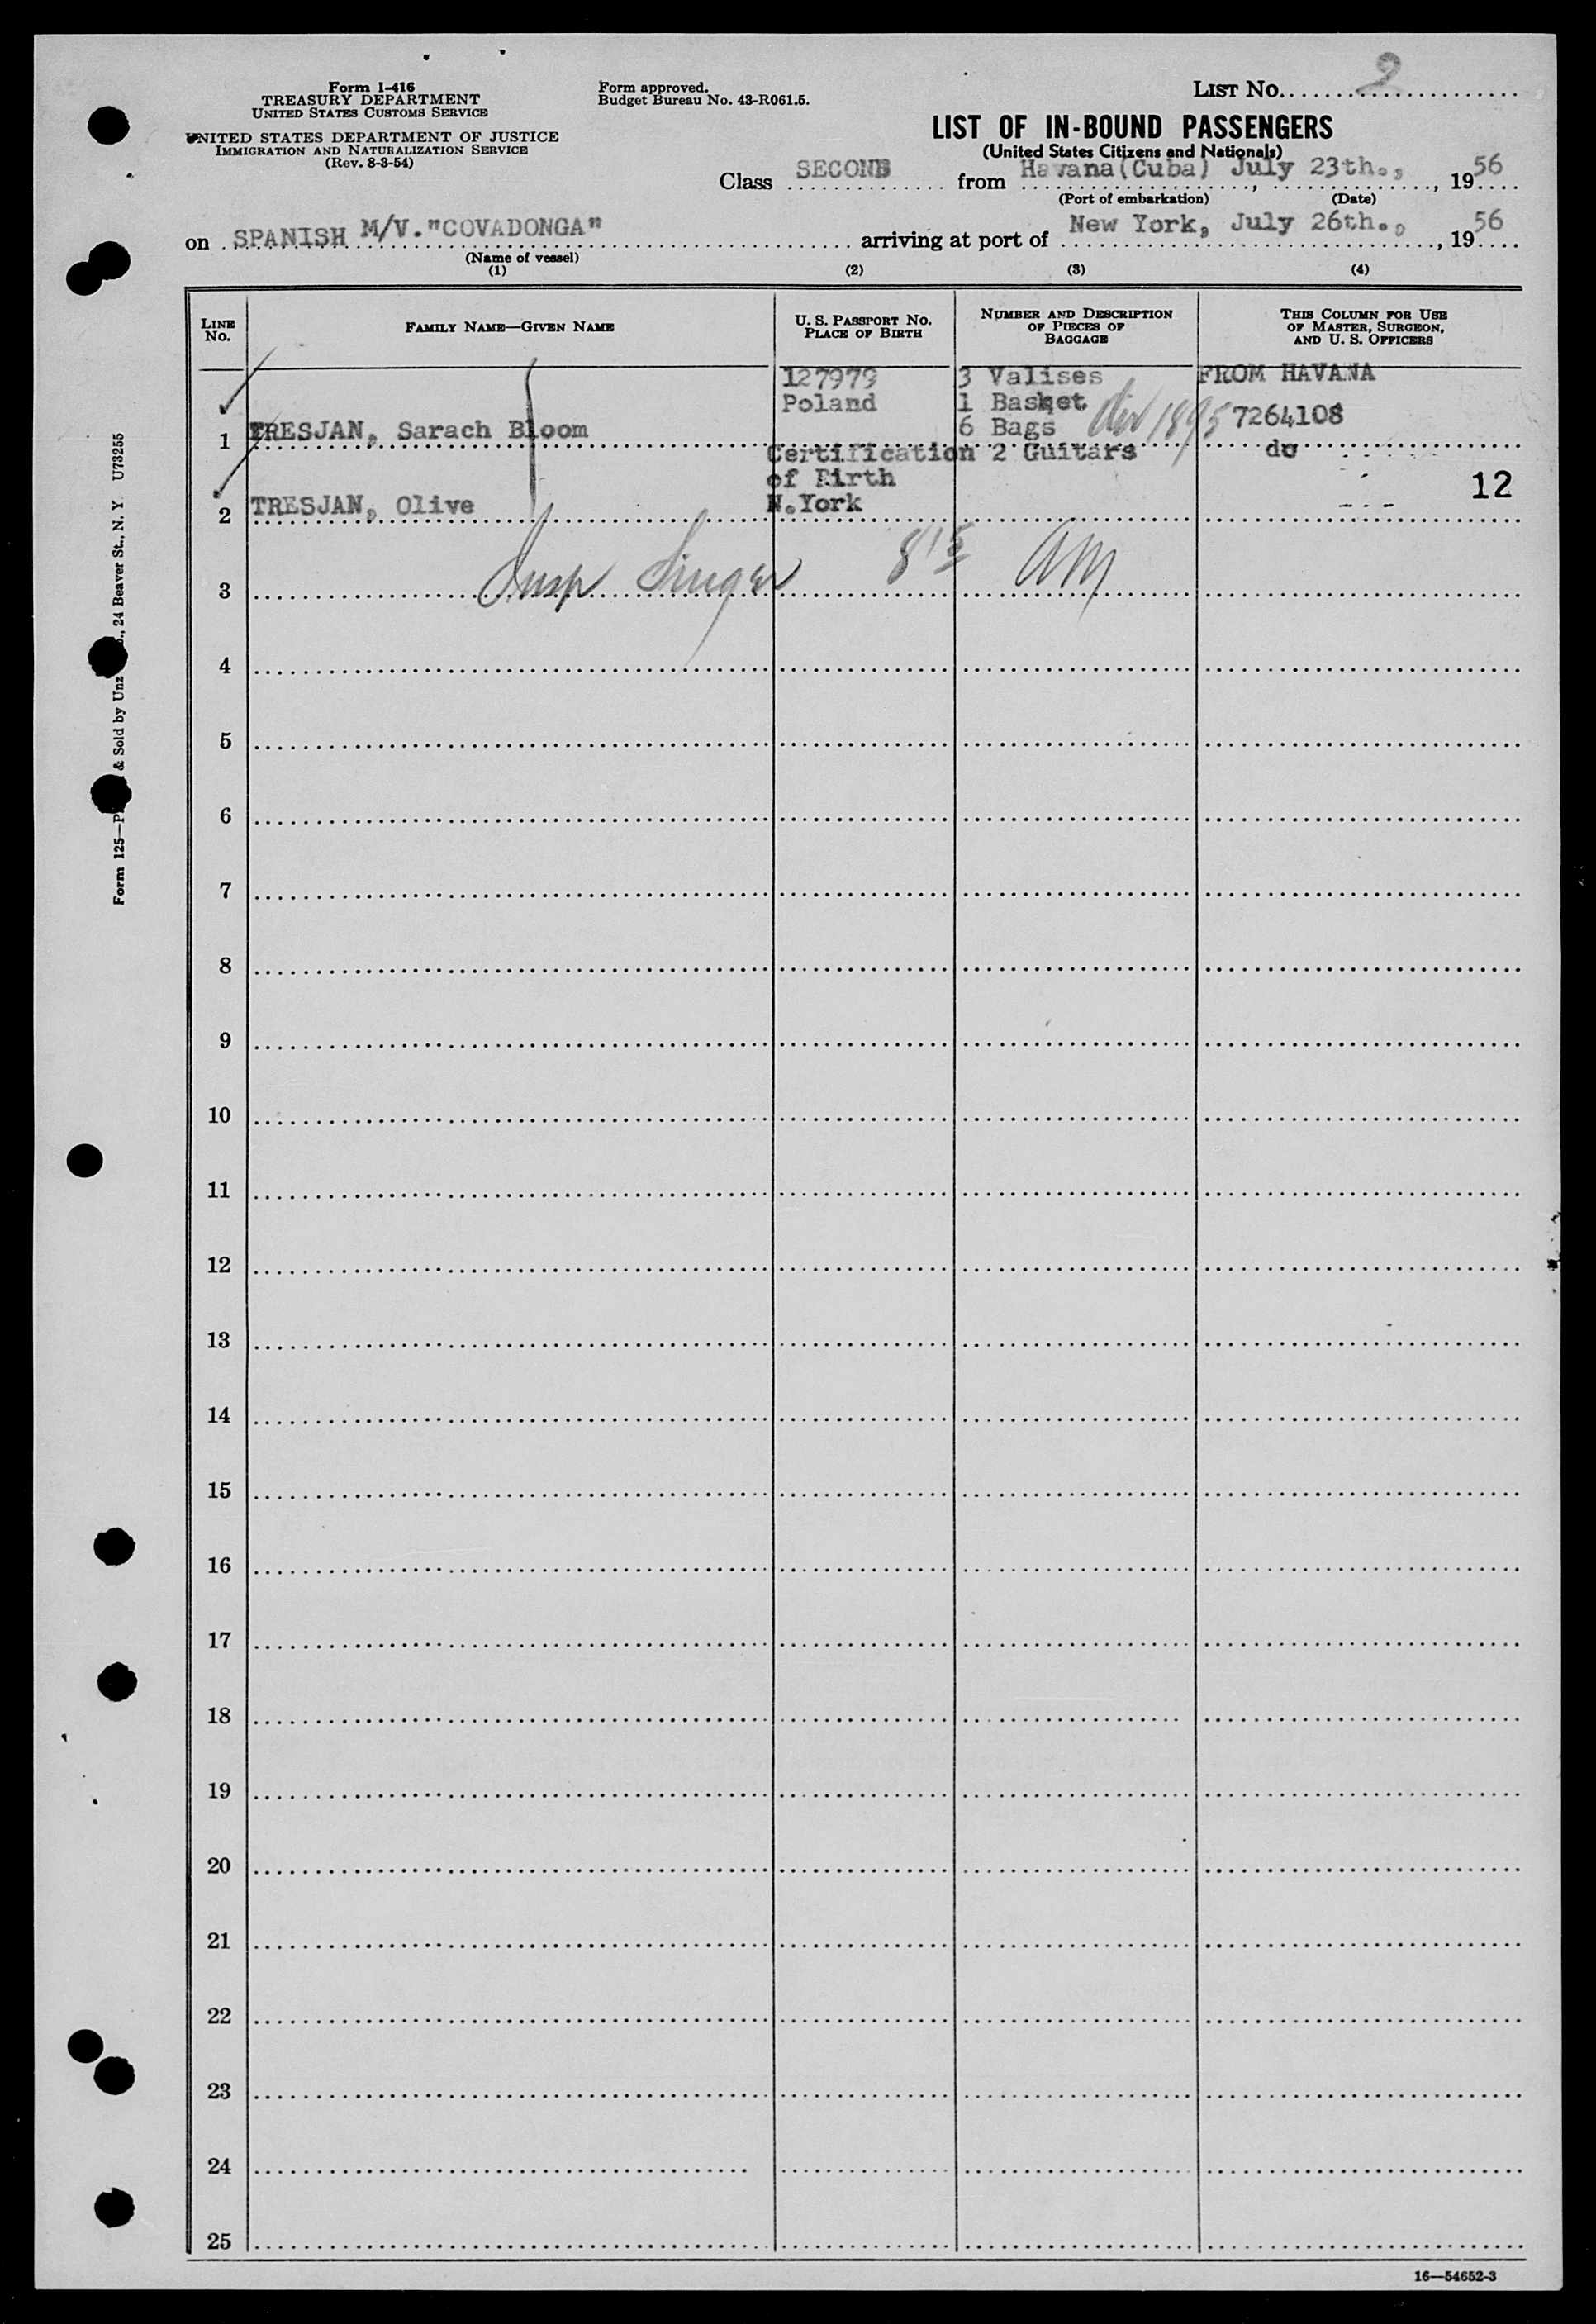 Form I-416
TREASURY DEPARTMENT
UNITED STATES CUSTOMS SERVICE
UNITED STATES DEPARTMENT OF JUSTICE
IMMIGRATION AND NATURALIZATION SERVICE
(Rev. 8-3-54)
Form approved.
Budget Bureau No. 43-R061.5.
LIST No. 2
LIST OF IN-BOUND PASSENGERS
(United States Citizens and Nationals)
Class SECOND from Havana(Cuba) July 23th., 1956
(Port of embarkation) (Date)
on SPANISH M/V."COVADONGA" arriving at port of New York, July 26th., 1956
(Name of vessel)
(1) (2) (3) (4)
LINE No.
FAMILY NAME—GIVEN NAME
U. S. PASSPORT No.
PLACE OF BIRTH
NUMBER AND DESCRIPTION
OF PIECES OF
BAGGAGE
THIS COLUMN FOR USE
OF MASTER, SURGEON,
AND U. S. OFFICERS
127979 3 Valises FROM HAVANA
Poland 1 Basket 1895 7264108
1 TRESJAN, Sarach Bloom 6 Bags
Certification 2 Guitars do
of Birth 12
2 TRESJAN, Olive N.York
3 Insp Singer 8 15 AM
4
5
6
7
8
9
10
11
12
13
14
15
16
17
18
19
20
21
22
23
24
25
Form 125— & Sold by Unz 24 Beaver St., N. Y U73255
16—54652-3